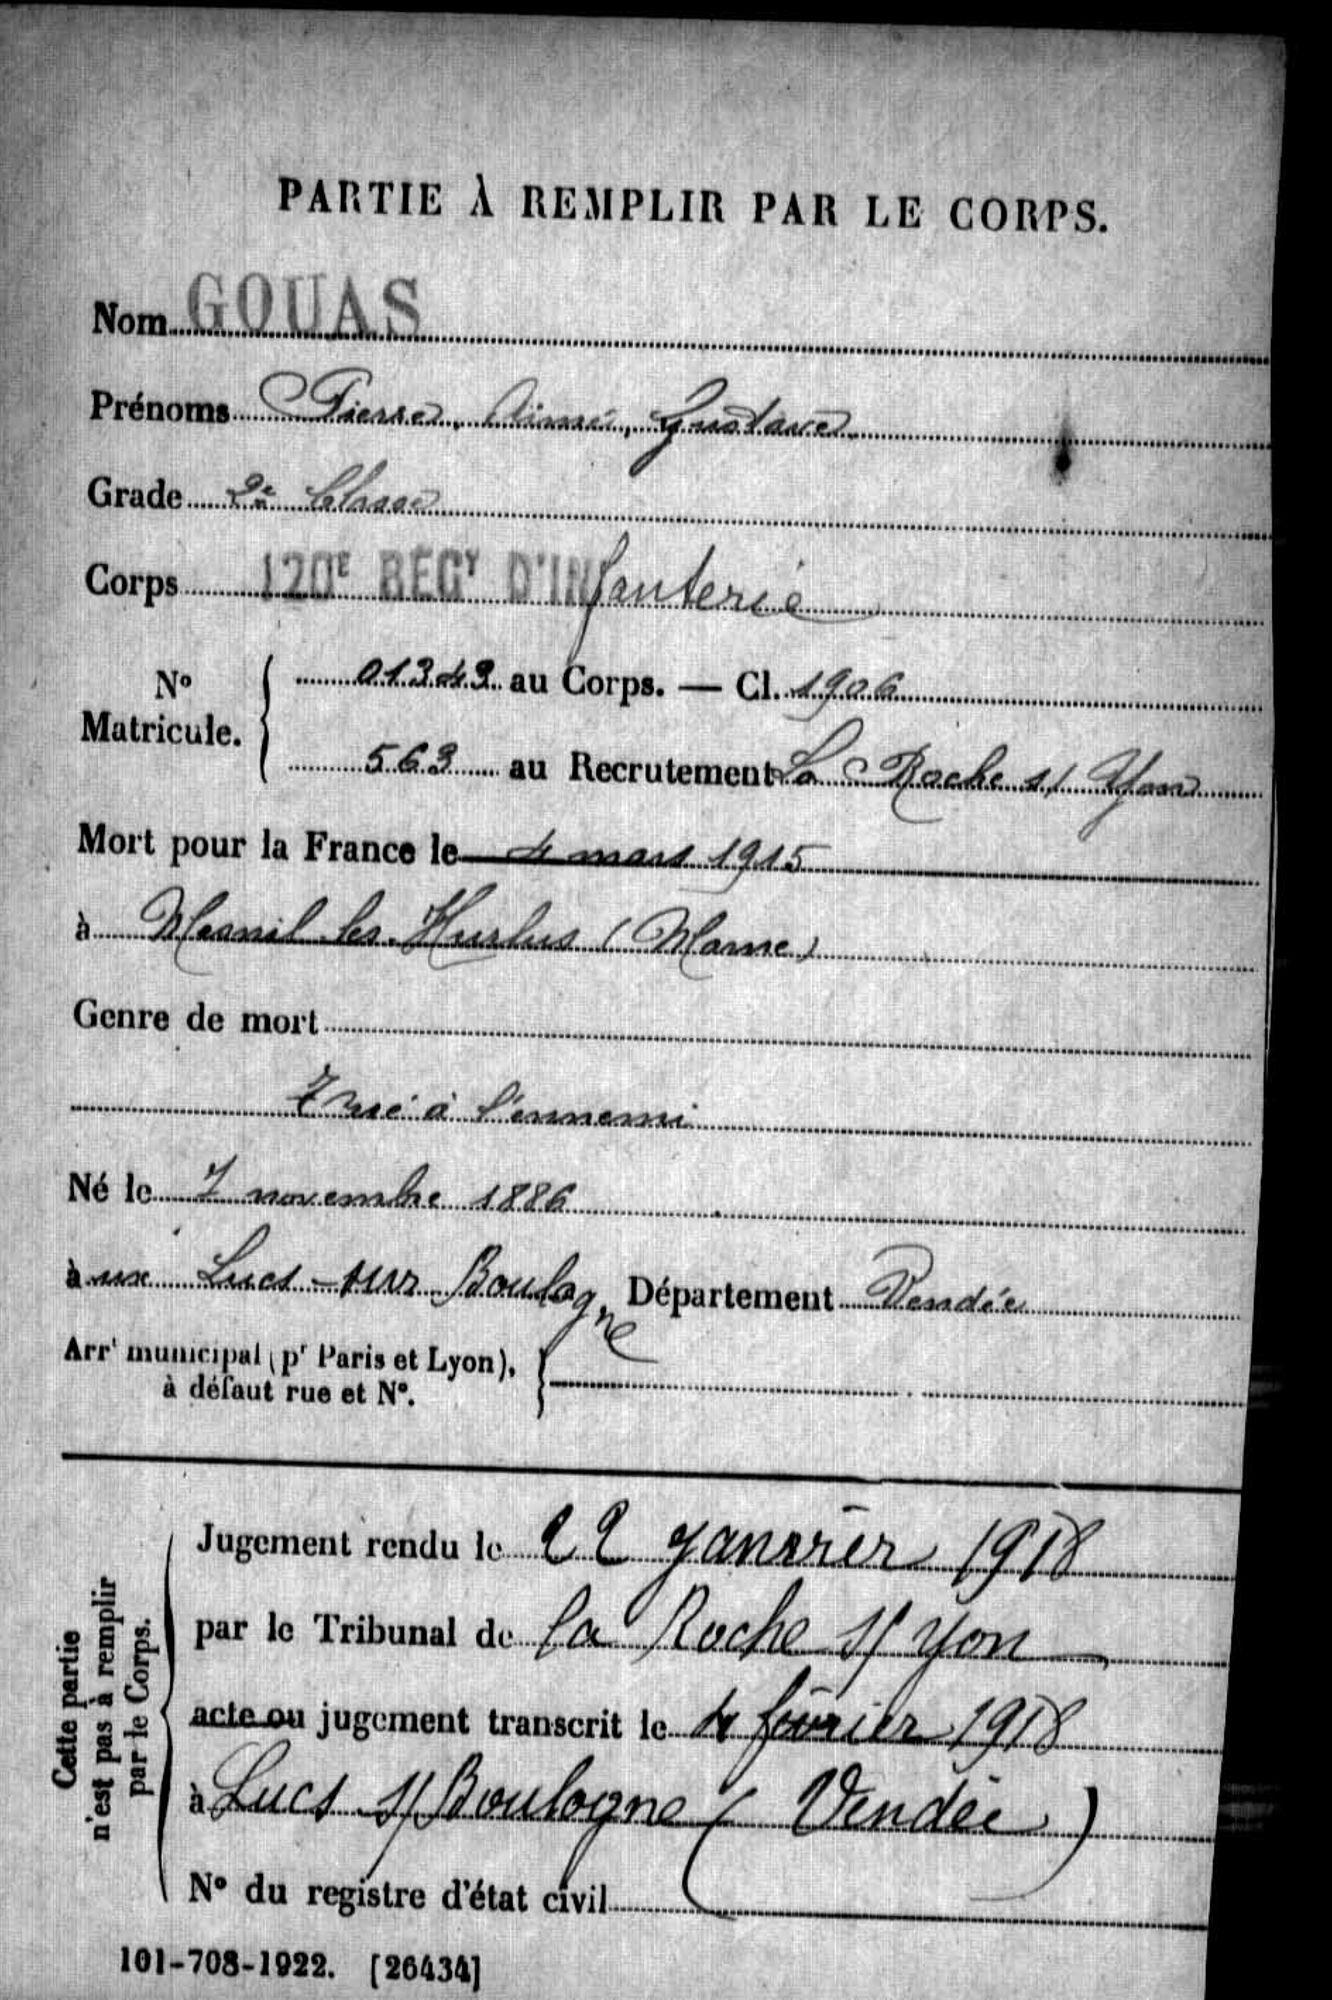 PARTIE À REMPLIR PAR LE CORPS.
Nom GOUAS
Prénoms Pierre, Aimé, Gustave
Grade 2e Classe
Corps 120E RÉGT D'INfanterie
No Matricule. { 01343 au Corps. — Cl. 1906
563 au Recrutement La Roche s/ Yon
Mort pour la France le 4 mars 1915
à Mesnil les Hurlus (Marne)
Genre de mort
Tué à l'ennemi
Né le 7 novembre 1886
à ux Lucs-sur-Boulogne Département Vendée
Arrt municipal (pr Paris et Lyon), à défaut rue et No.
Cette partie n'est pas à remplir par le Corps.
Jugement rendu le 22 janvier 1918
par le Tribunal de la Roche s/ yon
acte ou jugement transcrit le 4 février 1918
à Lucs s/ Boulogne (Vendée)
No du registre d'état civil
101-708-1922. [26434]